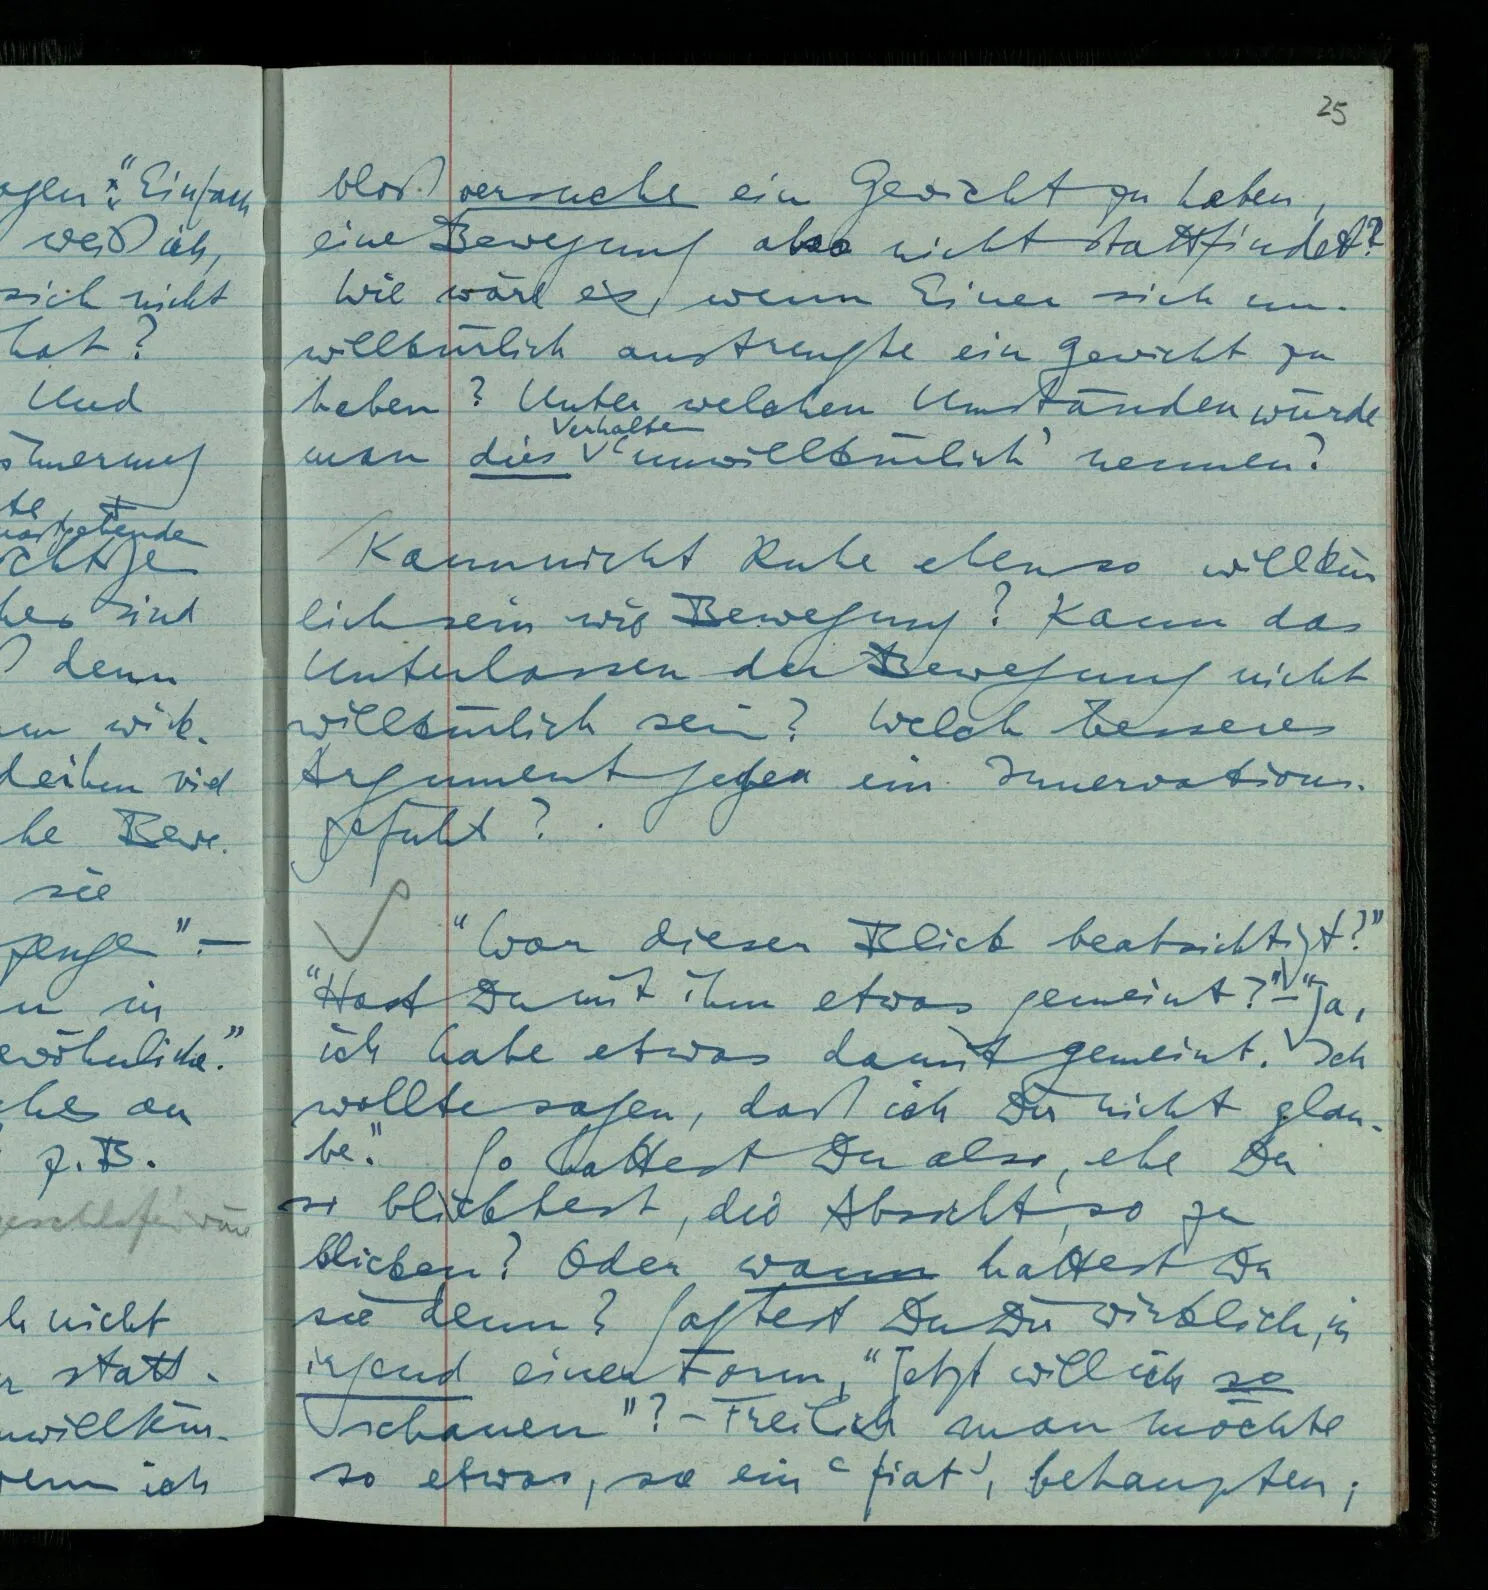 ogen": "Einfach
weiß ich,
sich nicht
hat?
Und
te
chtige
sind
denn
wirk-
vid
he Bewe-
sie
"–
n in
ewöhnliche."
che an
z.B.
h nicht
statt-
nwillkür-
wenn ich
25
bloß versuche ein Gewicht zu heben,
eine Bewegung also nicht stattfindet?
Wie wäre es, wenn Einer sich un-
willkürlich anstrengte ein Gewicht zu
heben? Unter welchen Umständen würde
Verhalten
man dies ∨ 'unwillkürlich' nennen?
Kann nicht Ruhe ebenso willkür
lich sein wie Bewegung? Kann das
Unterlassen der Bewegung nicht
willkürlich sein? Welch besseres
Argument gegen ein Innervations-
gefühl?
"War dieser Blick beabsichtigt?"
"Hast Du mit ihm etwas gemeint?" – "Ja,
ich habe etwas damit gemeint. Ich
wollte sagen, daß ich Dir nicht glau-
be." So hattest Du also, ehe Du
so blicktest, die Absicht, so zu
blicken? Oder wann hattest Du
sie denn? Sagtest Du Dir wirklich, in
irgend einer Form, "Jetzt will ich so
schauen"? – Freilich man möchte
so etwas, so ein 'fiat', behaupten;